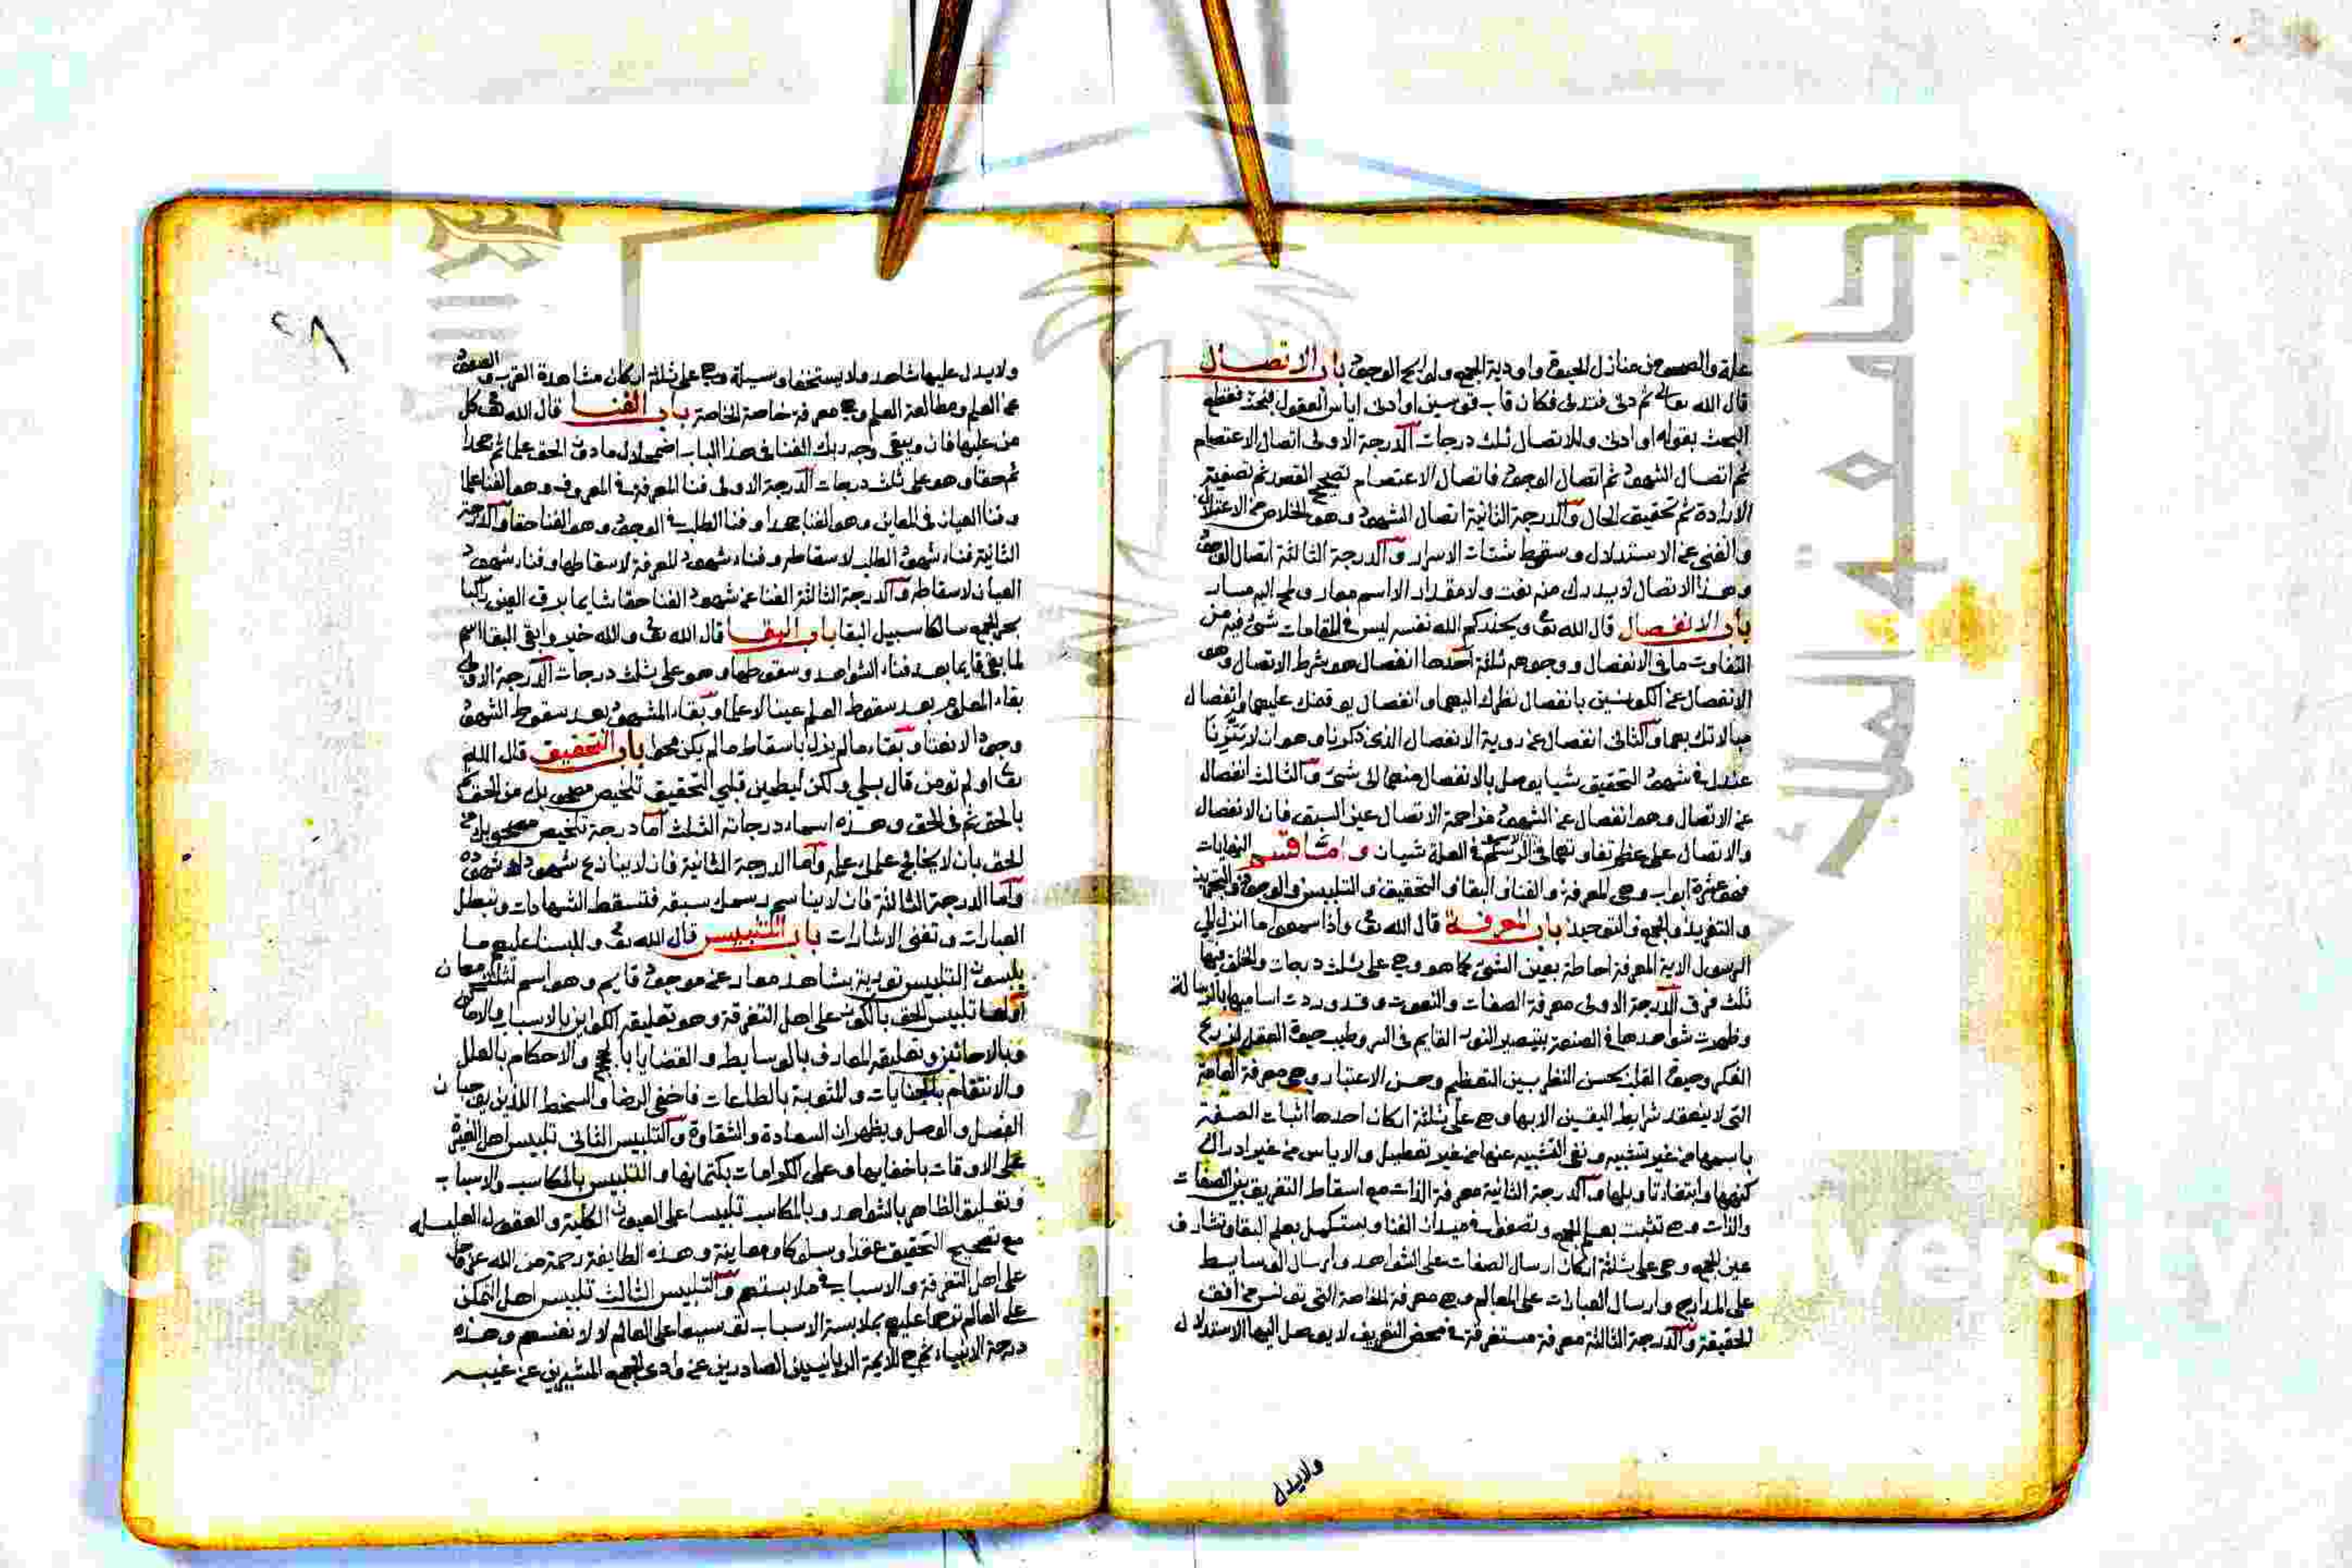 علة والصعود عن منازل الحيوة واودية الجمع ولوايح الوجود باب الاتصال
قال الله تعالى ثم دنى فتدلى فكان قاب قوسين او ادنى اياس العقول بحث فقطع
البحث بقوله او ادنى وللاتصال ثلث درجات الدرجة الاولى اتصال الاعتصام
ثم اتصال الشهود ثم اتصال الوجود فاتصال الاعتصام تصحيح القصد ثم تصفية
الارادة ثم تحقيق الحال والدرجة الثانية اتصال الشهود وهو الخلاص من الاعتلال
والغنى عن الاستدلال وسقوط شتات الاسرار والدرجة الثالثة اتصال الوجود
وهذا الاتصال لا يدرك منه نعت ولا مقدار الا اسم معار ولمح اليه مسار
باب الانفصال قال الله تع ويحذركم الله نفسه ليس في المقامات شئ فيه من
التفاوت ما في الانفصال ووجوهه ثلثة احدها انفصال هو شرط الاتصال وهو
الانفصال عن الكونين بانفصال نظرك اليهما وانفصال توقفك عليهما وانفصال
مبالاتك بهما والثاني انفصال عن روية الانفصال الذي ذكرنا وهو ان لا يتزنا
عندك في شهود التحقيق شيا يوصل بالانفصال منهما الى شئ والثالث انفصال
عن الاتصال وهو انفصال عن الشهود مزاحمة الاتصال عين السبق فان الانفصال
والاتصال على عظم تفاوتهما في الاسم والرسم في العلة سيان واما قسم النهايات
فهو عشرة ابواب وهي المعرفة والفنا والبقا والتحقيق والتلبيس والوجود والتجريد
والتفريد والجمع والتوحيد باب المعرفة قال الله تع واذا سمعوا ما انزل الى
الرسول الاية المعرفة احاطة بعين الشئ كما هو وهي على ثلث درجات والخلق فيها
ثلث فرق الدرجة الاولى معرفة الصفات والنعوت وقد وردت اساميها بالرسالة
وظهرت شواهدها في الصنعة بتبصير النور القايم في السر وطيب حيوة العقل لزرع
الفكر وحيوة القلب بحسن النظر بين التعظيم وحسن الاعتبار وهي معرفة العامة
التي لا ينعقد شرايط اليقين الا بها وهي على ثلثة اركان احدها اثبات الصفة
باسمها من غير تشبيه ونفي التشبيه عنها من غير تعطيل والاياس من غير ادراك
كنهها وابتغاء تاويلها والدرجة الثانية معرفة الذات مع اسقاط التفريق بين الصفات
والذات وهي تثبت بعلم الجمع وتصفو في ميدان الفنا ويستكمل بعلم البقا وتشارف
عين الجمع وهي على ثلثة اركان ارسال الصفات على الشواهد وارسال الوسايط
على المدارج وارسال العبارات على المعالم وهي معرفة الخاصة التي تونس من افق
الحقيقة والدرجة الثالثة معرفة مستغرقة في محض التعريف لا يوصل اليها الاستدلال
ولا يدل
٢٨
ولا يدل عليها شاهد ولا يستحقها وسيلة وهي على ثلثة اركان مشاهدة القرب والصعود
عن العلم ومطالعة الجمع وهي معرفة خاصة الخاصة باب الفنا قال الله تع كل
من عليها فان ويبقى وجه ربك الفنا في هذا الباب اضمحلال ما دون الحق علما ثم جحدا
ثم حقا وهو على ثلث درجات الدرجة الاولى فنا المعرفة في المعروف وهو الفنا علما
وفنا العيان في المعاين وهو الفنا جحدا وفنا الطلب في الوجود وهو الفنا حقا والدرجة
الثانية فناء شهود الطلب لاسقاطه وفناء شهود المعرفة لاسقاطها وفناء شهود
العيان لاسقاطه والدرجة الثالثة الفنا عن شهود الفنا حقا شايما برق العين راكبا
بحر الجمع سالكا سبيل البقا باب البقا قال الله تع والله خير وابقى البقا اسم
لما بقي قايما بعد فناء الشواهد وسقوطها وهو على ثلث درجات الدرجة الاولى
بقاء المعلوم بعد سقوط العلم عينا لا علما وبقاء المشهود بعد سقوط الشهود
وجودا لا نعتا وبقاء مالم يزل باسقاط مالم يكن محوا باب التحقيق قال الله
تع اولم تومن قال بلى ولكن ليطمين قلبي التحقيق تلخيص مصحوبك من الحق ثم
بالحق ثم في الحق وهذه اسماء درجاته الثلث اما درجة تلخيص مصحوبك من
الحق بان لا يخالج علمك علمه واما الدرجة الثانية فان لا ينازع شهودك شهوده
واما الدرجة الثالثة فان لا يناسم رسمك سبقه فتسقط الشهادات وتبطل
العبارات وتفنى الاشارات باب التلبيس قال الله تع وللبسنا عليهم ما
يلبسون التلبيس تورية بشاهد معار عن موجود قايم وهو اسم لثلثة معان
اولها تلبيس الحق بالكون على اهل التفرقة وهو تعليقه الكواين بالاسباب والاماكن
وبالاحايين وتعليقه المعارف بالوسايط والقضايا بالحجج والاحكام بالعلل
والانتقام بالجنايات والمثوبة بالطاعات فاخفى الرضا والسخط اللذين يوجبان
الفصل والوصل ويظهران السعادة والشقاوة والتلبيس الثاني تلبيس اهل الغيرة
على الاوقات باخفايها وعلى الكرامات بكتمانها والتلبيس بالمكاسب والاسباب
وتعليق الظاهر بالشواهد وبالمكاسب تلبيسا على العيون الكليلة والعقول العليلة
مع تصحيح التحقيق عقدا وسلوكا ومعاينة وهذه الطايفة رحمة من الله عز وجل
على اهل التفرقة والاسباب في ملابستهم والتلبيس الثالث تلبيس اهل التمكن
على العالم ترحما عليهم بملابسة الاسباب توسيعا على العالم لا لانفسهم وهذه
درجة الانبياء ثم هي للايمة الربانيين الصادرين عن وادى الجمع المشيرين عن عينه